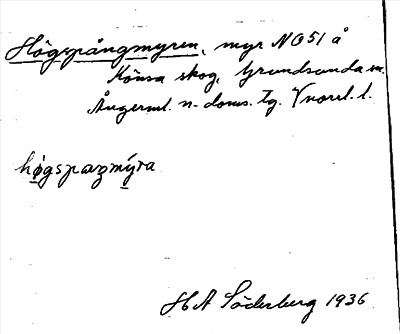 Högspångmyren, myr NO51 å
Könsa skog, Grundsunda sn.
Ångerml. n. doms. tg. Vnorrl. l.
høgspaŋmýra
H A Söderberg 1936